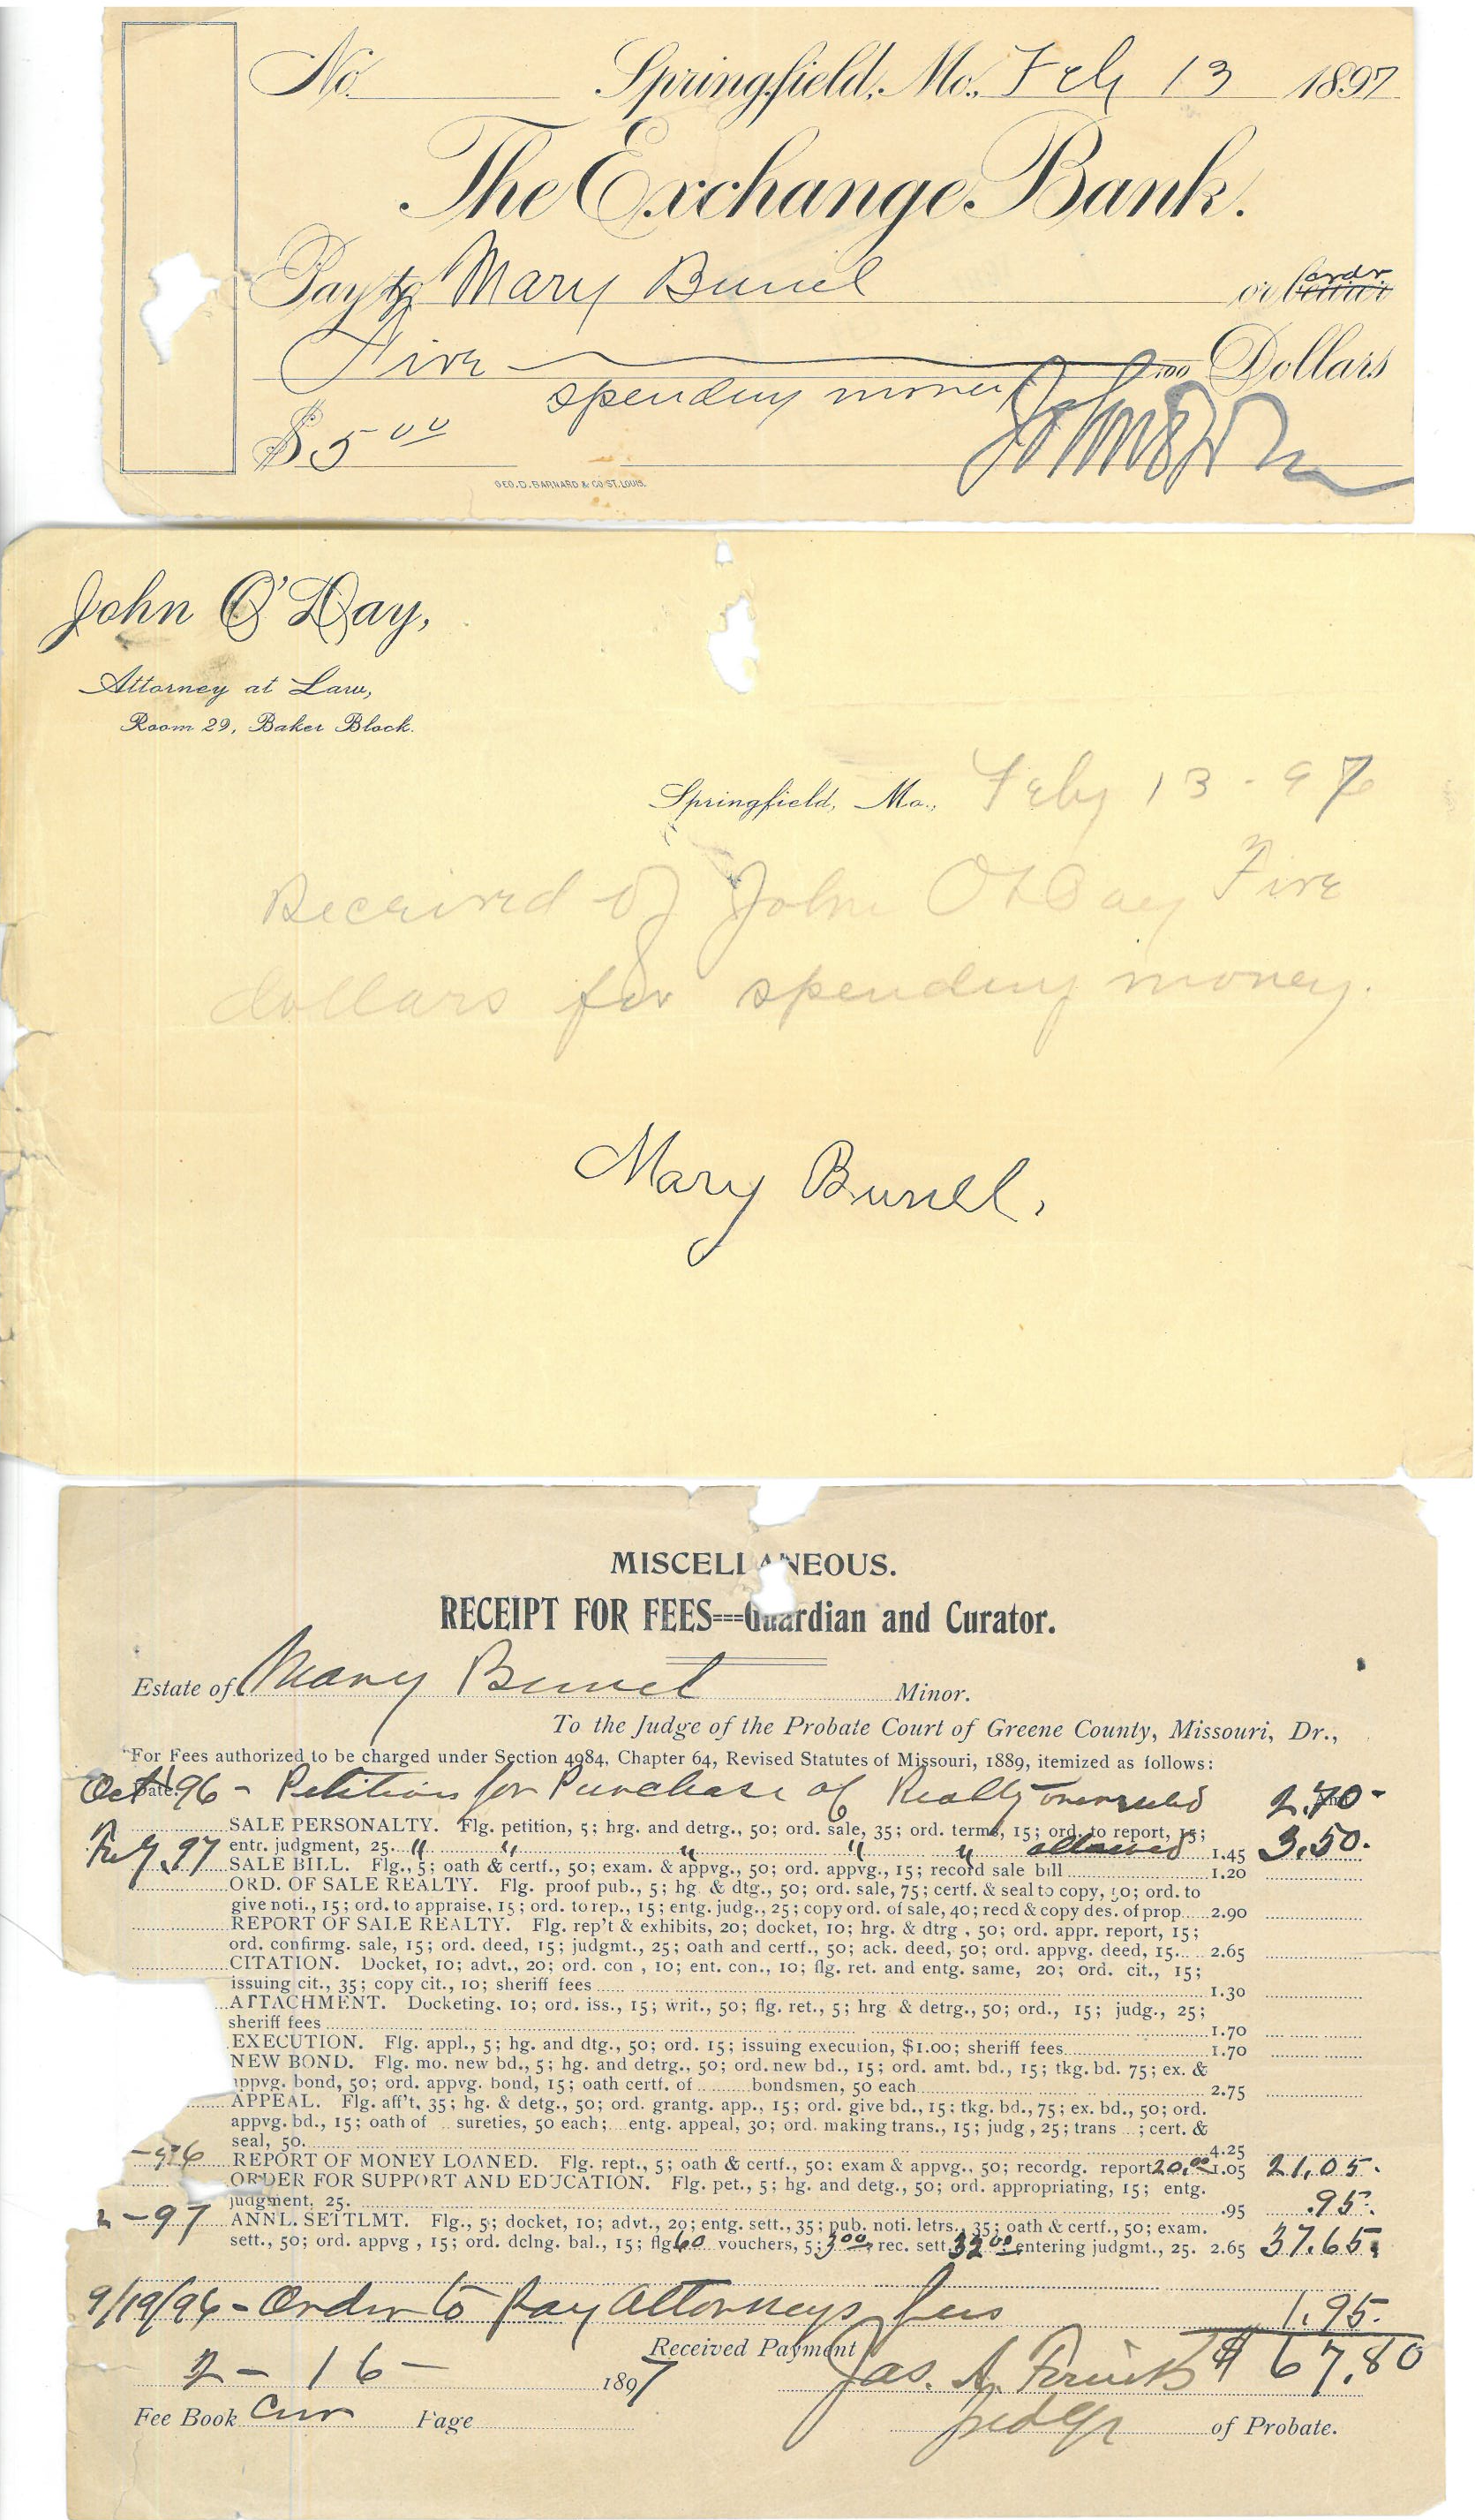 No. Springfield, Mo., Feb 13 1897
The Exchange Bank.
Pay to Mary Burrel or bearer ordr
Five /100 Dollars
spending money
$5 00
GEO. D. BARNARD & CO. ST. LOUIS.
John O'Day,
Attorney at Law,
Room 29, Baker Block.
Springfield, Mo., Feby 13-97
Received of John O'Day Five
dollars for spending money.
Mary Burrell.
MISCELLANEOUS.
RECEIPT FOR FEES---Guardian and Curator.
Estate of Mary Burrel Minor.
To the Judge of the Probate Court of Greene County, Missouri, Dr.,
For Fees authorized to be charged under Section 4984, Chapter 64, Revised Statutes of Missouri, 1889, itemized as follows:
Date. Oct 96 - Petition for Purchase of Realty overruled 2.70-
SALE PERSONALTY. Flg. petition, 5; hrg. and detrg., 50; ord. sale, 35; ord. terms, 15; ord. to report, 15;
Feby. 97 entr. judgment, 25. " " " " " allowed 1.45 3.50.
SALE BILL. Flg., 5; oath & certf., 50; exam. & appvg., 50; ord. appvg., 15; record sale bill 1.20
ORD. OF SALE REALTY. Flg. proof pub., 5; hg. & dtg., 50; ord. sale, 75; certf. & seal to copy, 50; ord. to
give noti., 15; ord. to appraise, 15; ord. to rep., 15; entg. judg., 25; copy ord. of sale, 40; recd & copy des. of prop. 2.90
REPORT OF SALE REALTY. Flg. rep't & exhibits, 20; docket, 10; hrg. & dtrg, 50; ord. appr. report, 15;
ord. confirmg. sale, 15; ord. deed, 15; judgmt., 25; oath and certf., 50; ack. deed, 50; ord. appvg. deed, 15. 2.65
CITATION. Docket, 10; advt., 20; ord. con, 10; ent. con., 10; flg. ret. and entg. same, 20; ord. cit., 15;
issuing cit., 35; copy cit., 10; sheriff fees 1.30
ATTACHMENT. Docketing, 10; ord. iss., 15; writ., 50; flg. ret., 5; hrg & detrg., 50; ord., 15; judg., 25;
sheriff fees 1.70
EXECUTION. Flg. appl., 5; hg. and dtg., 50; ord. 15; issuing execution, $1.00; sheriff fees 1.70
NEW BOND. Flg. mo. new bd., 5; hg. and detrg., 50; ord. new bd., 15; ord. amt. bd., 15; tkg. bd. 75; ex. &
appvg. bond, 50; ord. appvg. bond, 15; oath certf. of bondsmen, 50 each 2.75
APPEAL. Flg. aff't, 35; hg. & detg., 50; ord. grantg. app., 15; ord. give bd., 15; tkg. bd., 75; ex. bd., 50; ord.
appvg. bd., 15; oath of sureties, 50 each; entg. appeal, 30; ord. making trans., 15; judg, 25; trans ; cert. &
seal, 50. 4.25
-96 REPORT OF MONEY LOANED. Flg. rept., 5; oath & certf., 50; exam & appvg., 50; recordg. report 20.00 1.05 21.05.
ORDER FOR SUPPORT AND EDUCATION. Flg. pet., 5; hg. and detg., 50; ord. appropriating, 15; entg.
judgment, 25. .95 .95.
2-97 ANNL. SETTLMT. Flg., 5; docket, 10; advt., 20; entg. sett., 35; pub. noti. letrs., 35; oath & certf., 50; exam.
sett., 50; ord. appvg, 15; ord. dclng. bal., 15; flg 60 vouchers, 5; 3.00, rec. sett. 32.00 entering judgmt., 25. 2.65 37.65.
9/19/96 - Order to Pay Attorneys fees 1.95.
Received Payment $67.80
2-16- 1897 Jas. A.
Fee Book Cur Page Judge of Probate.